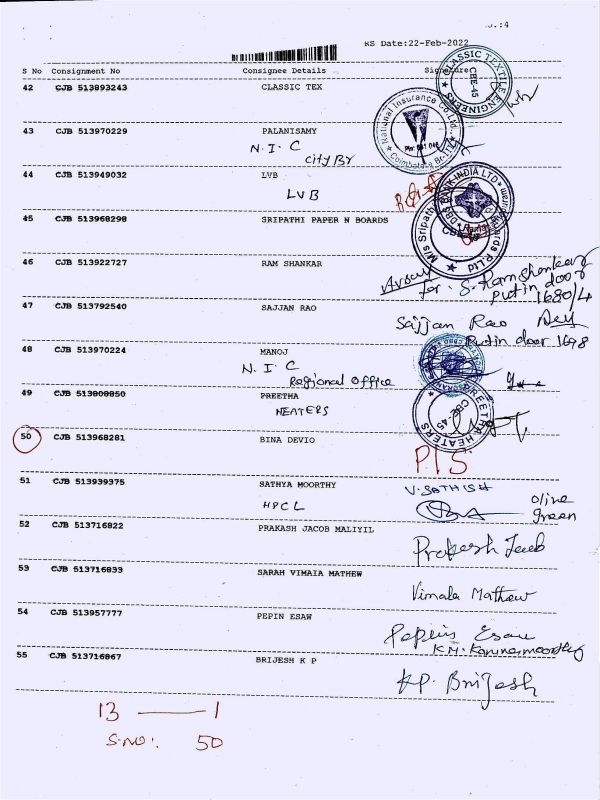 RS Date:22-Feb-2022
S No Consignment No Consignee Details Signature
42 CJB 513893243 CLASSIC TEX
CLASSIC TEXTILE ENGINEERS
CBE-45
43 CJB 513970229 PALANISAMY
N.I.C
City Br
National Insurance Co. Ltd.
44 CJB 513949032 LVB
LVB
DBS BANK INDIA LTD
45 CJB 513968298 SRIPATHI PAPER N BOARDS
M/s Sripathi
46 CJB 513922727 RAM SHANKAR
for. S. Ramshankar
Put in door
1680/4
47 CJB 513792540 SAJJAN RAO
Sajjan Rao
Putin door 1698
48 CJB 513970224 MANOJ
N.I.C
Regional Office
49 CJB 513808850 PREETHA
HEATERS
PREETHA HEATERS
CBE-45
50 CJB 513968281 BINA DEVIO
P/S
51 CJB 513939375 SATHYA MOORTHY
V. SATHISH
HPCL
olive
green
52 CJB 513716822 PRAKASH JACOB MALIYIL
Prakash Jacob
53 CJB 513716833 SARAH VIMAIA MATHEW
Vimala Mathew
54 CJB 513957777 PEPIN ESAW
Pepin Esau
55 CJB 513716867 BRIJESH K P
K.P. Brijesh
13 — 1
S.NO: 50